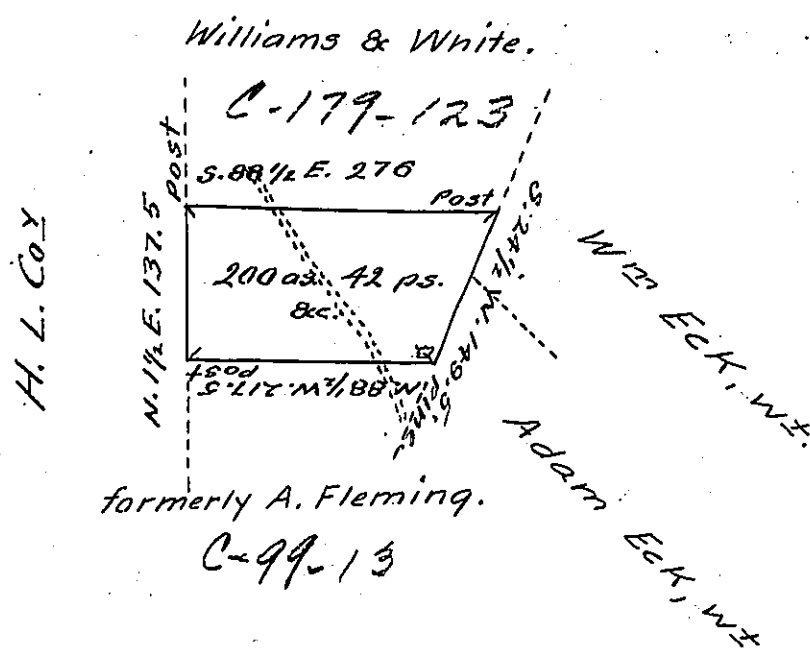 Williams & White.
C-179-123
Post
S. 88 1/2 E. 276
Post
H. L. Cox
N. 1 1/2 E. 137.5
200 as. 42 ps.
&c.
S. 24 1/2 W. 149.5
Wm Eck, wt.
Post
N. 88 1/2 W. 217.5
Pine
Adam Eck, wt
formerly A. Fleming.
C-99-13